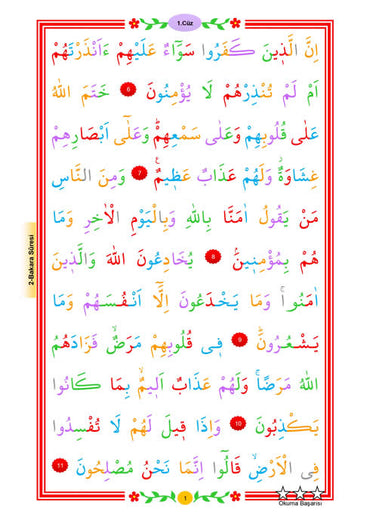 1.Cüz
اِنَّ الَّذٖينَ كَفَرُوا سَوَٓاءٌ عَلَيْهِمْ ءَاَنْذَرْتَهُمْ
اَمْ لَمْ تُنْذِرْهُمْ لَا يُؤْمِنُونَ 6 خَتَمَ اللّٰهُ
عَلٰى قُلُوبِهِمْ وَعَلٰى سَمْعِهِمْؕ وَعَلٰٓى اَبْصَارِهِمْ
غِشَاوَةٌؗ وَلَهُمْ عَذَابٌ عَظٖيمٌࣖ 7 وَمِنَ النَّاسِ
مَنْ يَقُولُ اٰمَنَّا بِاللّٰهِ وَبِالْيَوْمِ الْاٰخِرِ وَمَا
هُمْ بِمُؤْمِنٖينَۘ 8 يُخَادِعُونَ اللّٰهَ وَالَّذٖينَ
اٰمَنُواۚ وَمَا يَخْدَعُونَ اِلَّٓا اَنْفُسَهُمْ وَمَا
يَشْعُرُونَؕ 9 فٖى قُلُوبِهِمْ مَرَضٌۙ فَزَادَهُمُ
اللّٰهُ مَرَضاًۚ وَلَهُمْ عَذَابٌ اَلٖيمٌۙ بِمَا كَانُوا
يَكْذِبُونَ 10 وَاِذَا قٖيلَ لَهُمْ لَا تُفْسِدُوا
فِى الْاَرْضِۙ قَالُٓوا اِنَّمَا نَحْنُ مُصْلِحُونَ 11
2-Bakara Sûresi
1
Okuma Başarısı